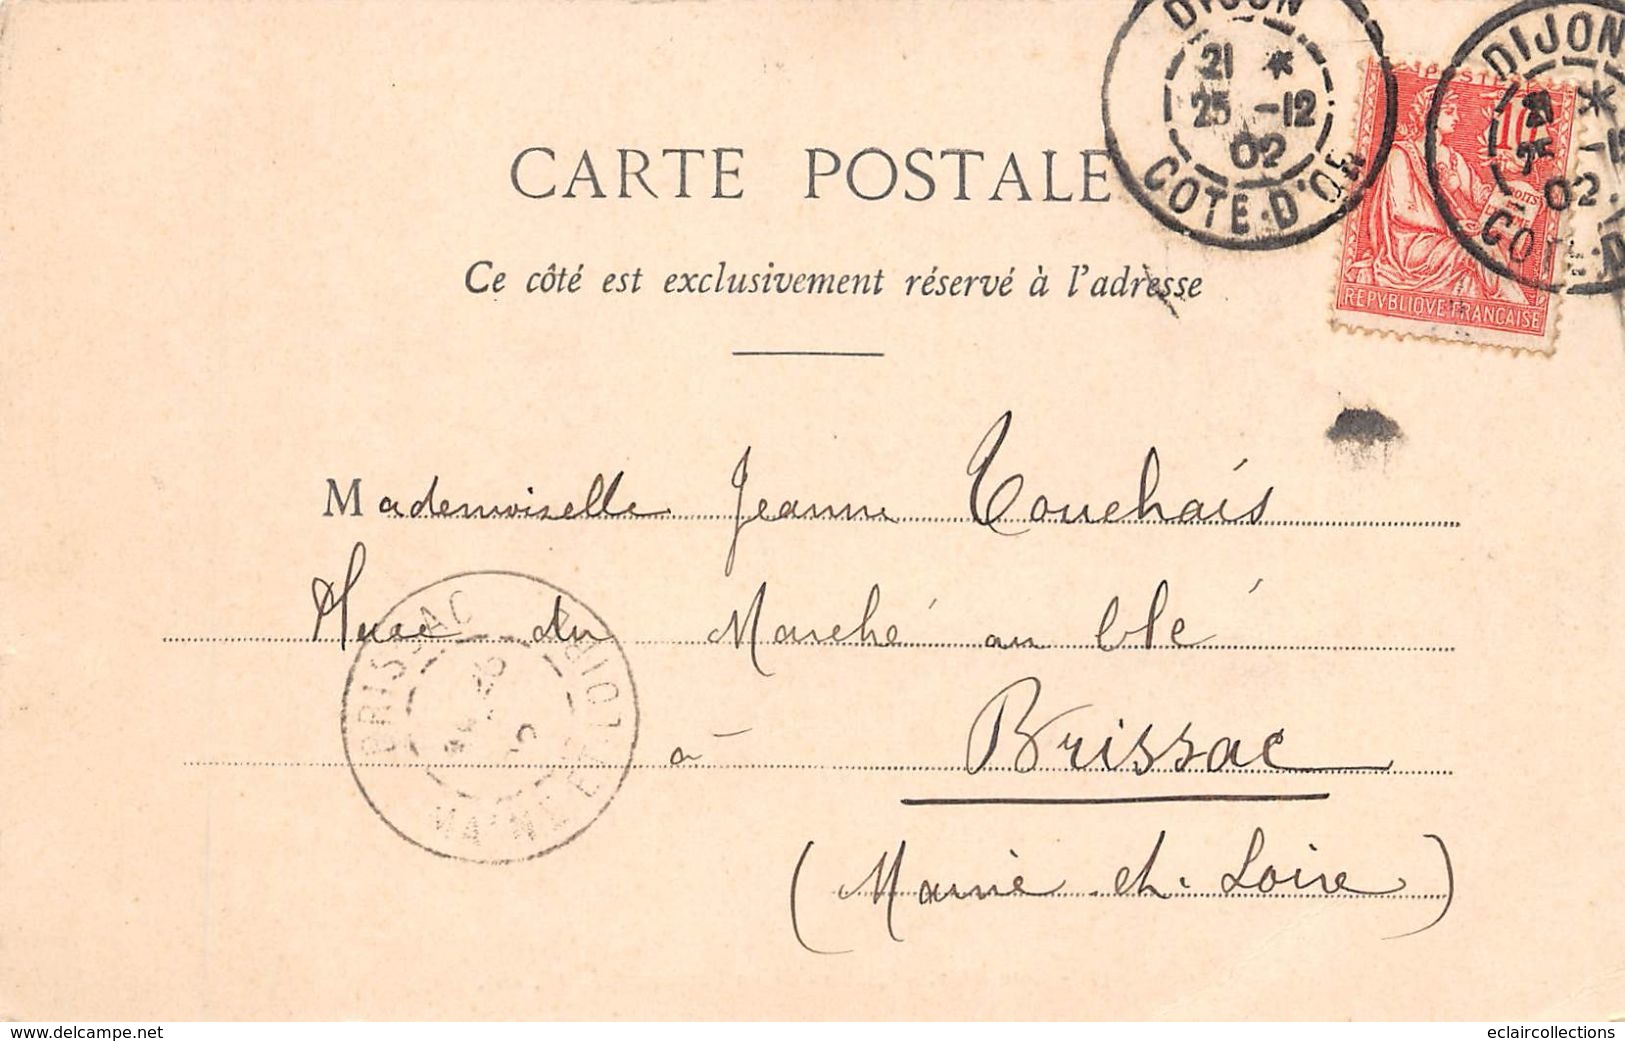 DIJON
21 *
25 -12
02
COTE-D'OR
DIJON
21 *
25 -12
02
COTE-D
POSTES
10
DROITS
REPVBLIQVE FRANCAISE
CARTE POSTALE
Ce côté est exclusivement réservé à l'adresse
Mademoiselle Jeanne Touchais
Rue du Marché au blé
à Brissac
(Maine et Loire)
BRISSAC
MAINE ET LOIRE
www.delcampe.net
eclaircollections